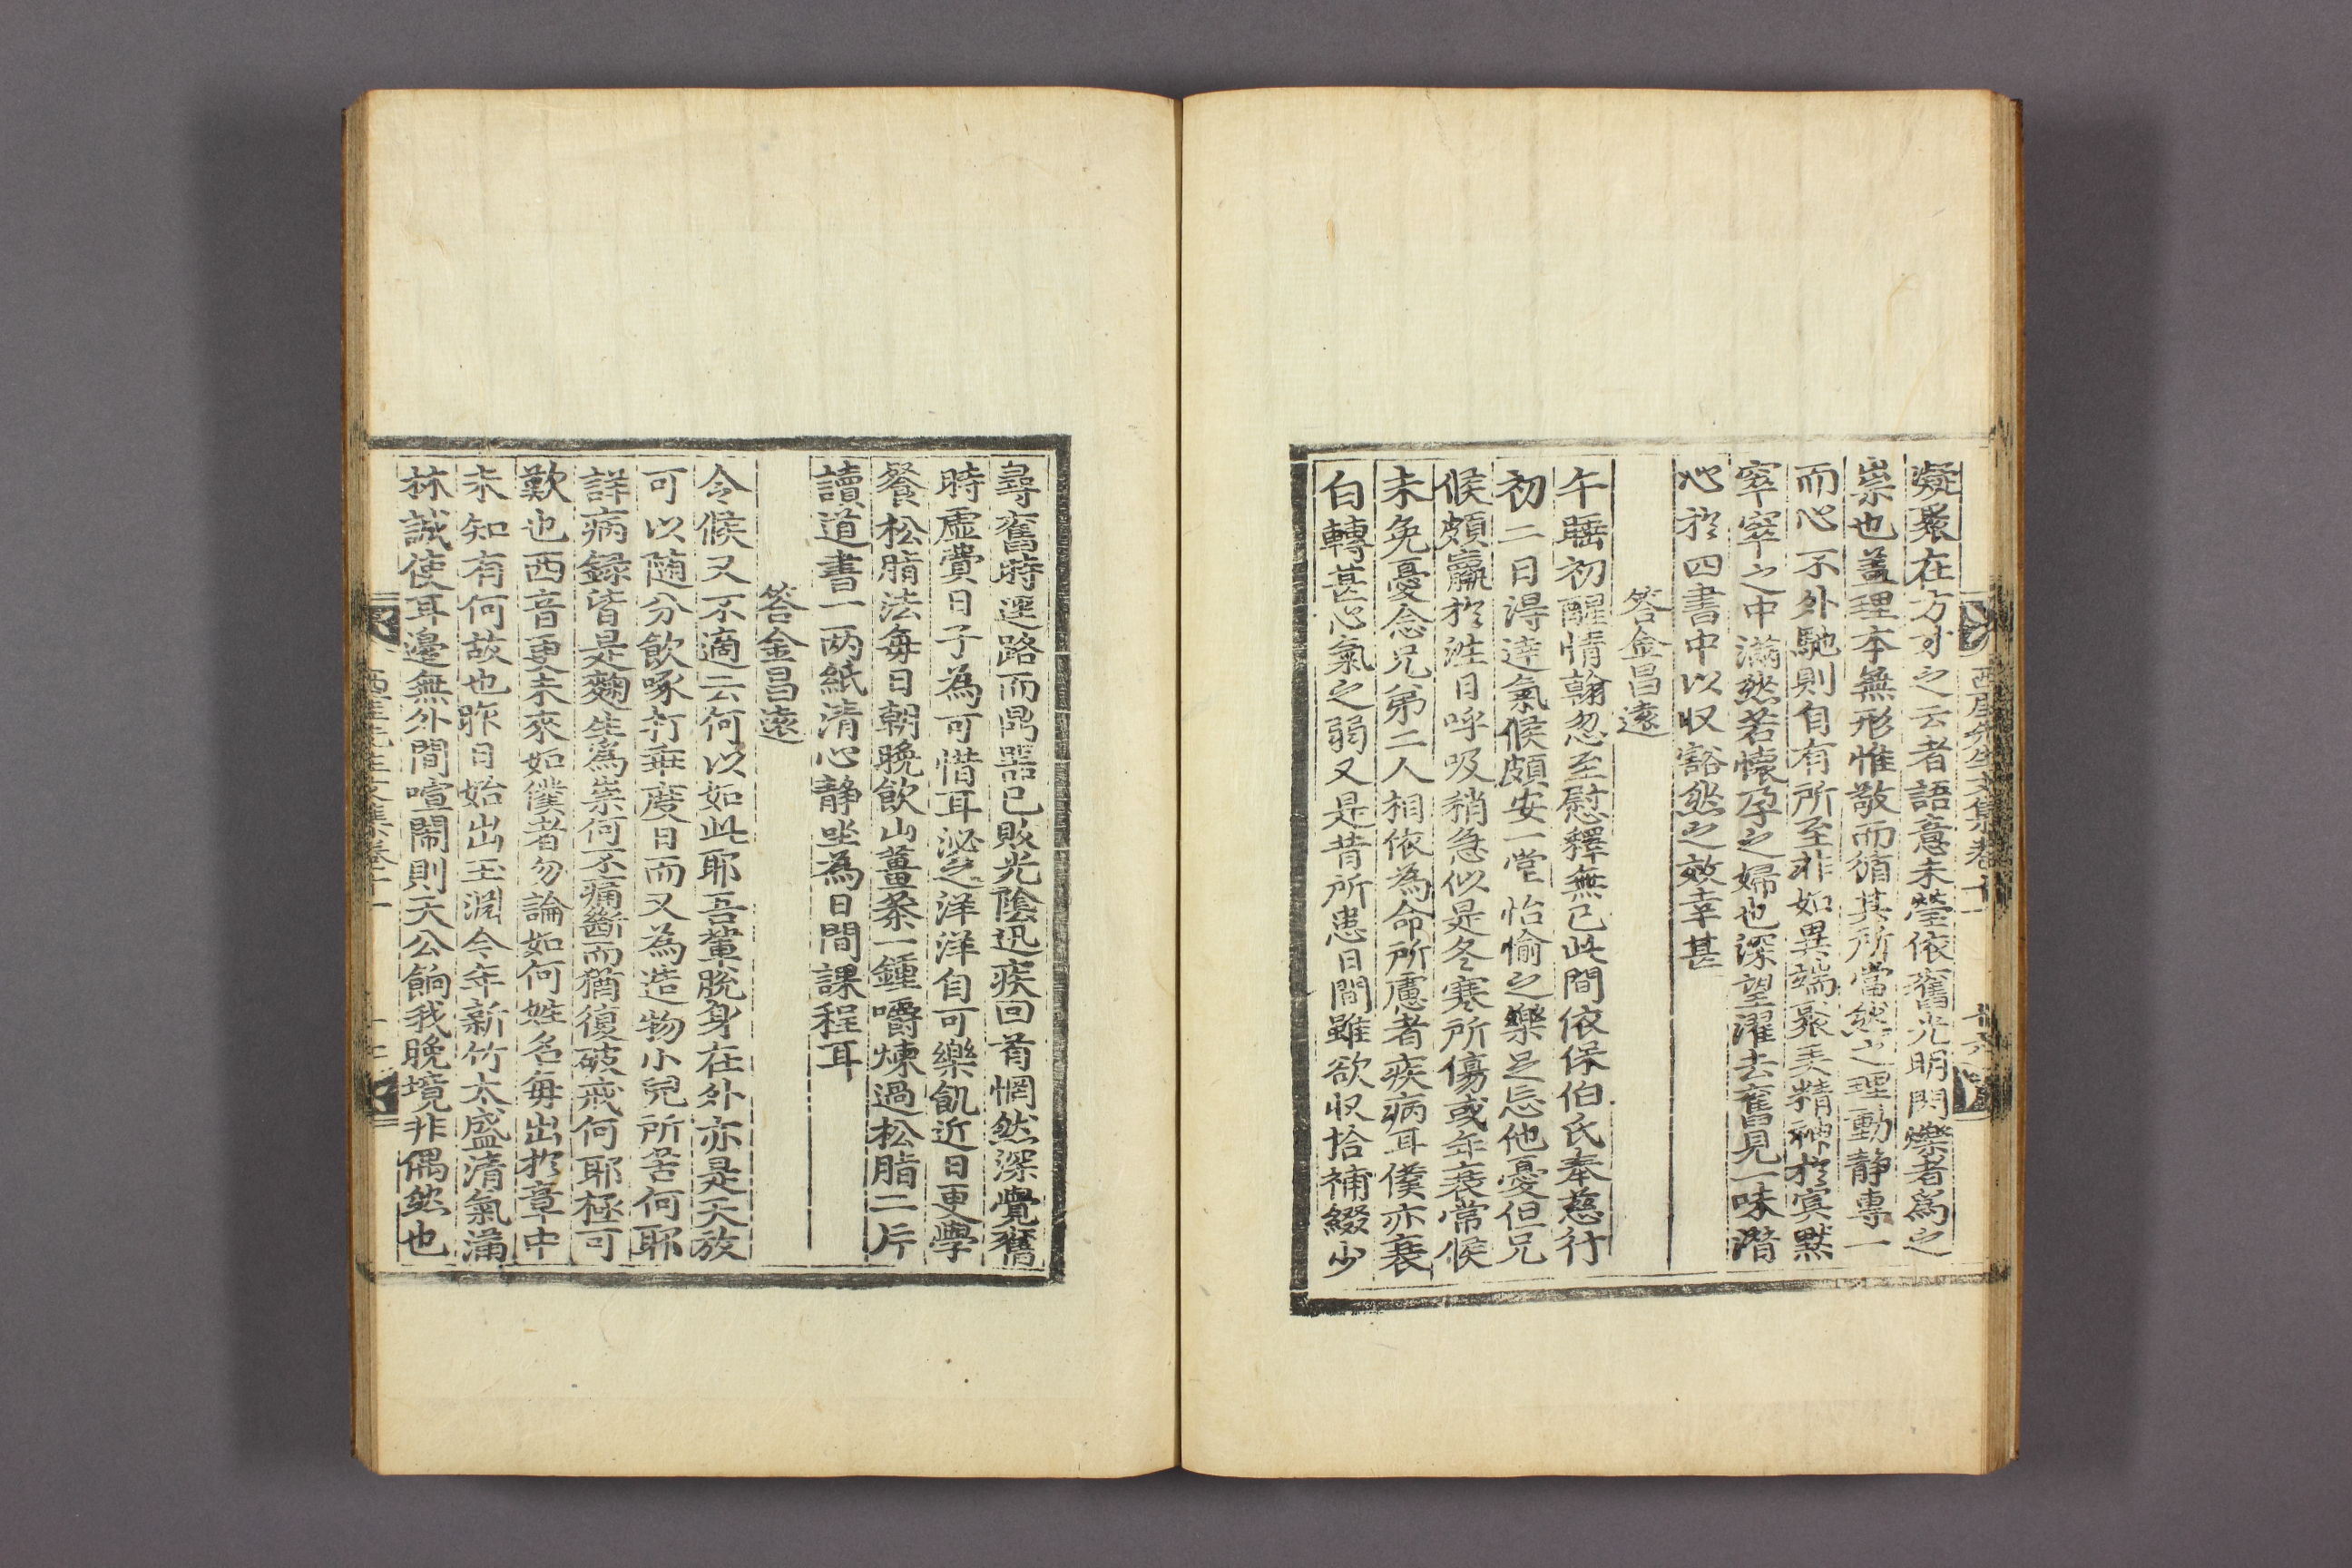 西厓先生文集卷十一
凝聚在方寸之云者語意未瑩依舊光明閃爍者爲之
祟也盖理本無形惟敬而循其所當然之理動靜專一
而心不外馳則自有所至非如異端聚美精神於冥默
窣窣之中滿然若懷孕之婦也深望濯去舊見一味潛
心於四書中以収豁然之效幸甚
答金昌遠
午睡初醒情翰忽至慰釋無已此間依保伯氏奉慈行
初二日得達氣候頗安一堂怡愉之樂足忘他憂但兄
候頗羸於涯日呼吸稍急似是冬寒所傷或年衰常候
未免憂念兄弟二人相依為命所慮者疾病耳僕亦衰
白轉甚心氣之弱又是昔所患日間雖欲収拾補綴少
尋舊時逕路而鼎器已敗光陰迅疾回首惘然深覺舊
時虛費日子為可惜耳泌之洋洋自可樂飢近日更學
餐松脂法每日朝晚飲山薑茶一鍾嚼煉過松脂二片
讀道書一兩紙清心靜坐為日間課程耳
答金昌遠
令候又不適云何以如此耶吾輩脫身在外亦是天放
可以随分飲啄打乖度日而又為造物小兒所苦何耶
詳病錄皆是麴生為祟何不痛斷而猶復破戒何耶極可
歎也西音更未來如僕者勿論如何姓名每出於章中
未知有何故也昨日始出玉淵今年新竹太盛清氣滿
林誠使耳邊無外間喧鬧則天公餉我晚境非偶然也
西厓先生文集卷十一